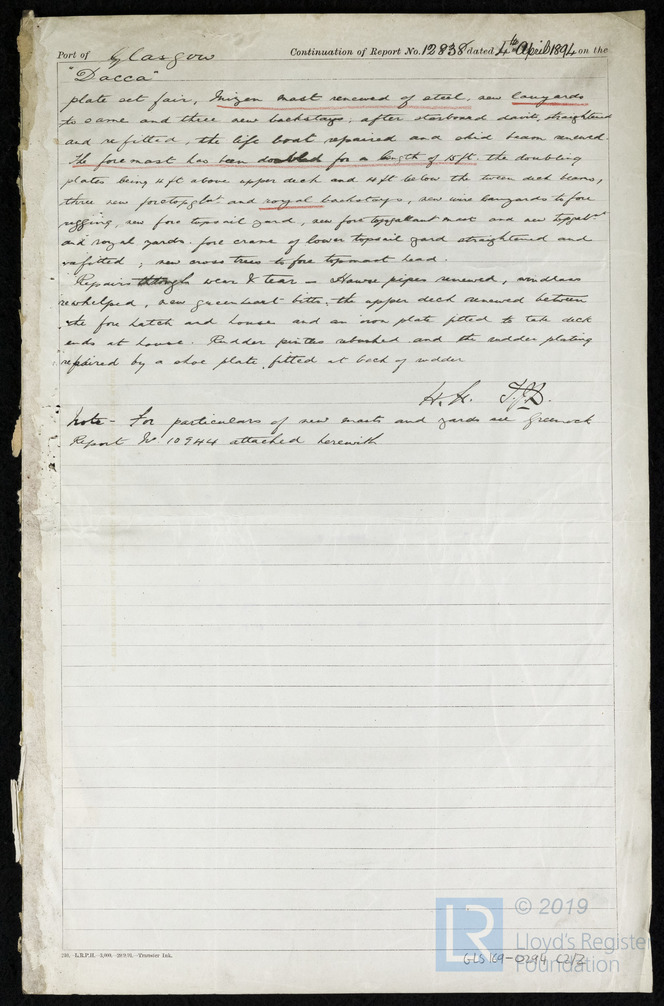 Port of Glasgow Continuation of Report No. 12838 dated 4th April 1894 on the
"Dacca"
plate set fair, mizen mast renewed of steel, new lanyards
to same and three new backstays, after starboard davit, straightened
and refitted, the life boat repaired and skid beam renewed.
The foremast has been doubled for a length of 15 ft. the doubling
plates being 4 ft above upper deck and 4 ft below the tween deck beams,
three new foretopglt and royal backstays, new wire lanyards to fore
rigging, new fore topsail yard, new fore topgallant mast and new topglt
and royal yards. fore crane of lower topsail yard straightened and
refitted, new cross trees to fore topmast head.
Repairs through wear & tear - Hawse pipes renewed, windlass
rewhelped, new greenheart bitts, the upper deck renewed between
the fore hatch and house and an iron plate fitted to take deck
ends at house. Rudder pintles rebushed and the rudder plating
repaired by a shoe plate fitted at back of rudder
H. H. T.J.D.
Note - For particulars of new masts and yards see Greenock
Report No 10944 attached herewith
L.R.P.H.-Transfer Ink.
LR
© 2019
Lloyd's Register
Foundation
GLS 169-0294 C2/2